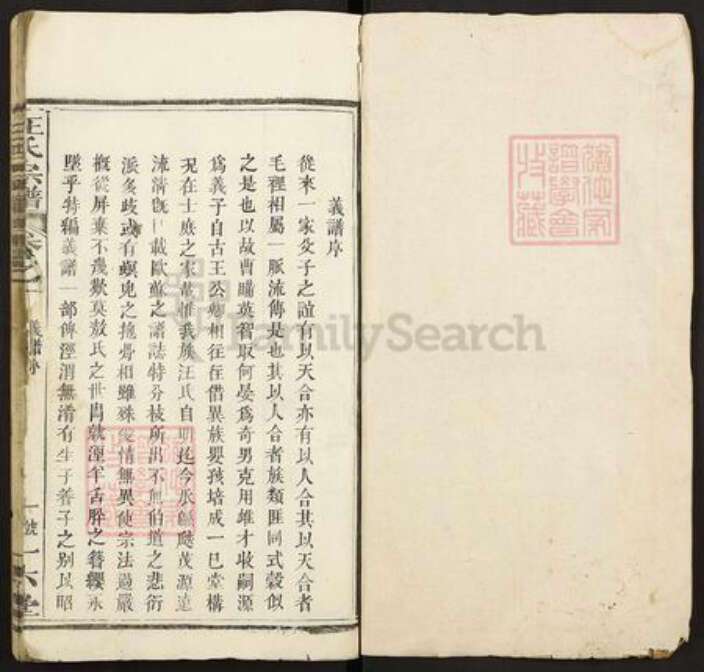 義譜序
從來一家父子之誼有以天合亦有以人合其以天合者
毛裡相屬一脈流傳是也其以人合者族類匪同式穀似
之是也以故曹瞞英智取何晏爲奇男克用雄才收嗣源
爲義子自古王公卿相往往借異族嬰孩培成一己堂構
況在士庶之家哉惟我族汪氏自明迄今瓜瓞茂源遠
流淸旣已載歐蘇之譜誌特分枝所出不無伯道之悲衍
派多歧或有螟之撫骨相雖殊情無異使宗法過嚴
概從屏棄不幾歎莫敖氏之世胄羊舌肸之簪纓永
墜乎特編義譜一部俾涇渭無淆有生子養子之别以昭
汪氏宗譜
卷之一
義譜序
一號
一六堂
FamilySearch
譜學會
收藏